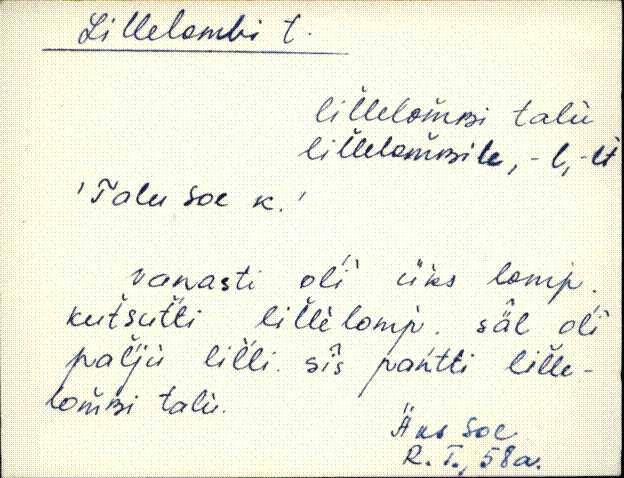 Lillelombi t.
lil̆lelom̆ʙi talù
lil̆lelom̆ʙile, -l, -lt
'Talu Soe k.'
vanasti oĺi üks lomp.
kut̆sut̆ti lil̆lèlomp. säl oĺi
pal̆jù lil̆li. sîs pańtti lil̆le-
lom̆ʙi talù.
Äks Soe
R. T., 58a.